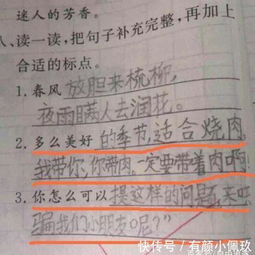 迷人的芳香。
八、读一读,把句子补充完整,再加上
合适的标点。
1. 春风放胆来梳柳,
夜雨瞒人去润花。
2. 多么美好的季节,适合烧肉,
我带你,你带肉。一定要带着肉啊!
3. 你怎么可以提这样的问题,来吓
骗我们小朋友呢?”
快传号/有颜小佩玖